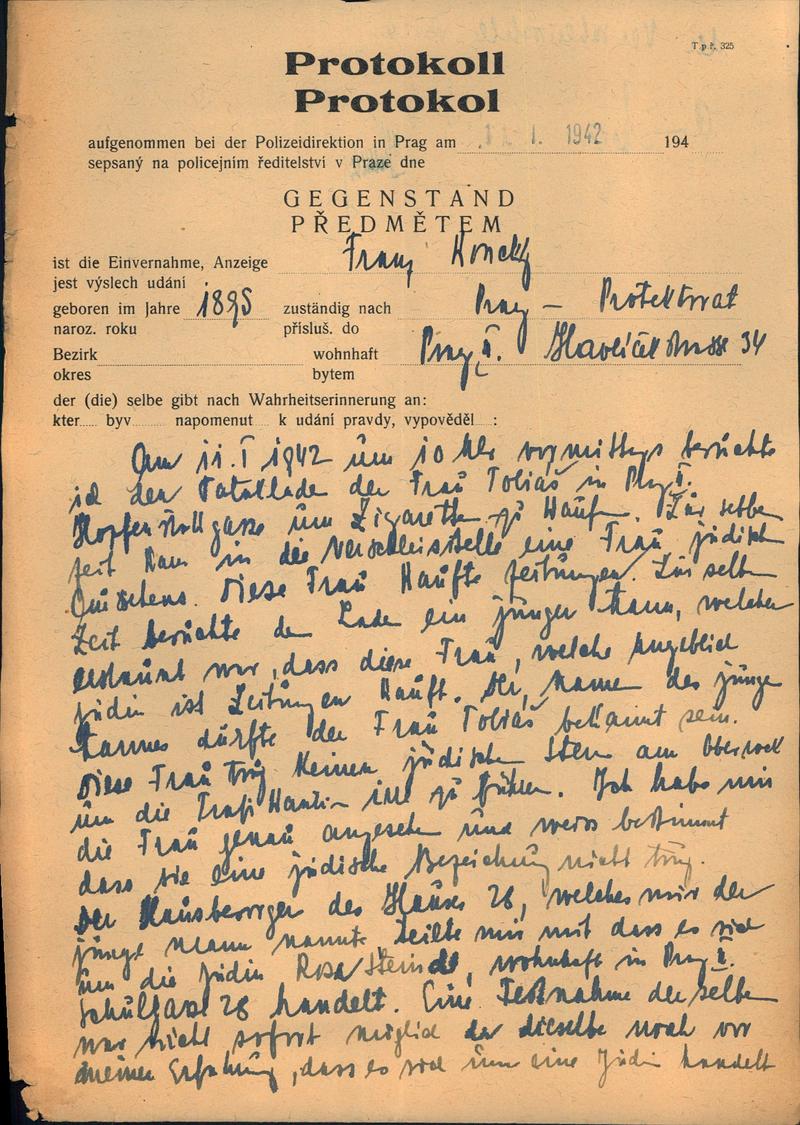 T. p. ř. 325
Protokoll
Protokol
aufgenommen bei der Polizeidirektion in Prag am 1. 1942 194
sepsaný na policejním ředitelství v Praze dne
GEGENSTAND
PŘEDMĚTEM
ist die Einvernahme, Anzeige Franz
jest výslech udání
geboren im Jahre 1895 zuständig nach Prag — Protektorat
naroz. roku přísluš. do
Bezirk wohnhaft Prag II. Havlíčekstrasse 34
okres bytem
der (die) selbe gibt nach Wahrheitserinnerung an:
kter byv napomenut k udání pravdy, vypověděl :
Am 11. I 1942 um 10 Uhr vormittags besuchte
ich den der Frau Tobiaš in Prag II.
um Zigaretten zu kaufen. Zur selben
Zeit kam in die Verschleisstelle eine Frau jüdisch
Aussehens. Diese Frau kaufte Zeitungen. Zur selben
Zeit besuchte den Laden ein junger Mann, welcher
erstaunt war, dass diese Frau, welche angeblich
Jüdin ist Zeitungen kauft. Der Namen des junge
Mannes dürfte der Frau Tobiaš bekannt sein.
Diese Frau trug keinen jüdischen Stern am
um die irre zu führen. Ich habe mir
die Frau genau angesehen und weiss bestimmt
dass sie eine jüdische Bezeichnung nicht trug.
Der Hausbesorger des Hauses 28, welches mir der
junge Mann nannte teilte mir mit dass es sich
um die Jüdin Rosa, wohnhaft in Prag II.
28 handelt. Eine Festnahme derselben
war nicht sofort möglich da dieselbe noch vor
meiner Erfahrung, dass es sich um eine Jüdin handelt